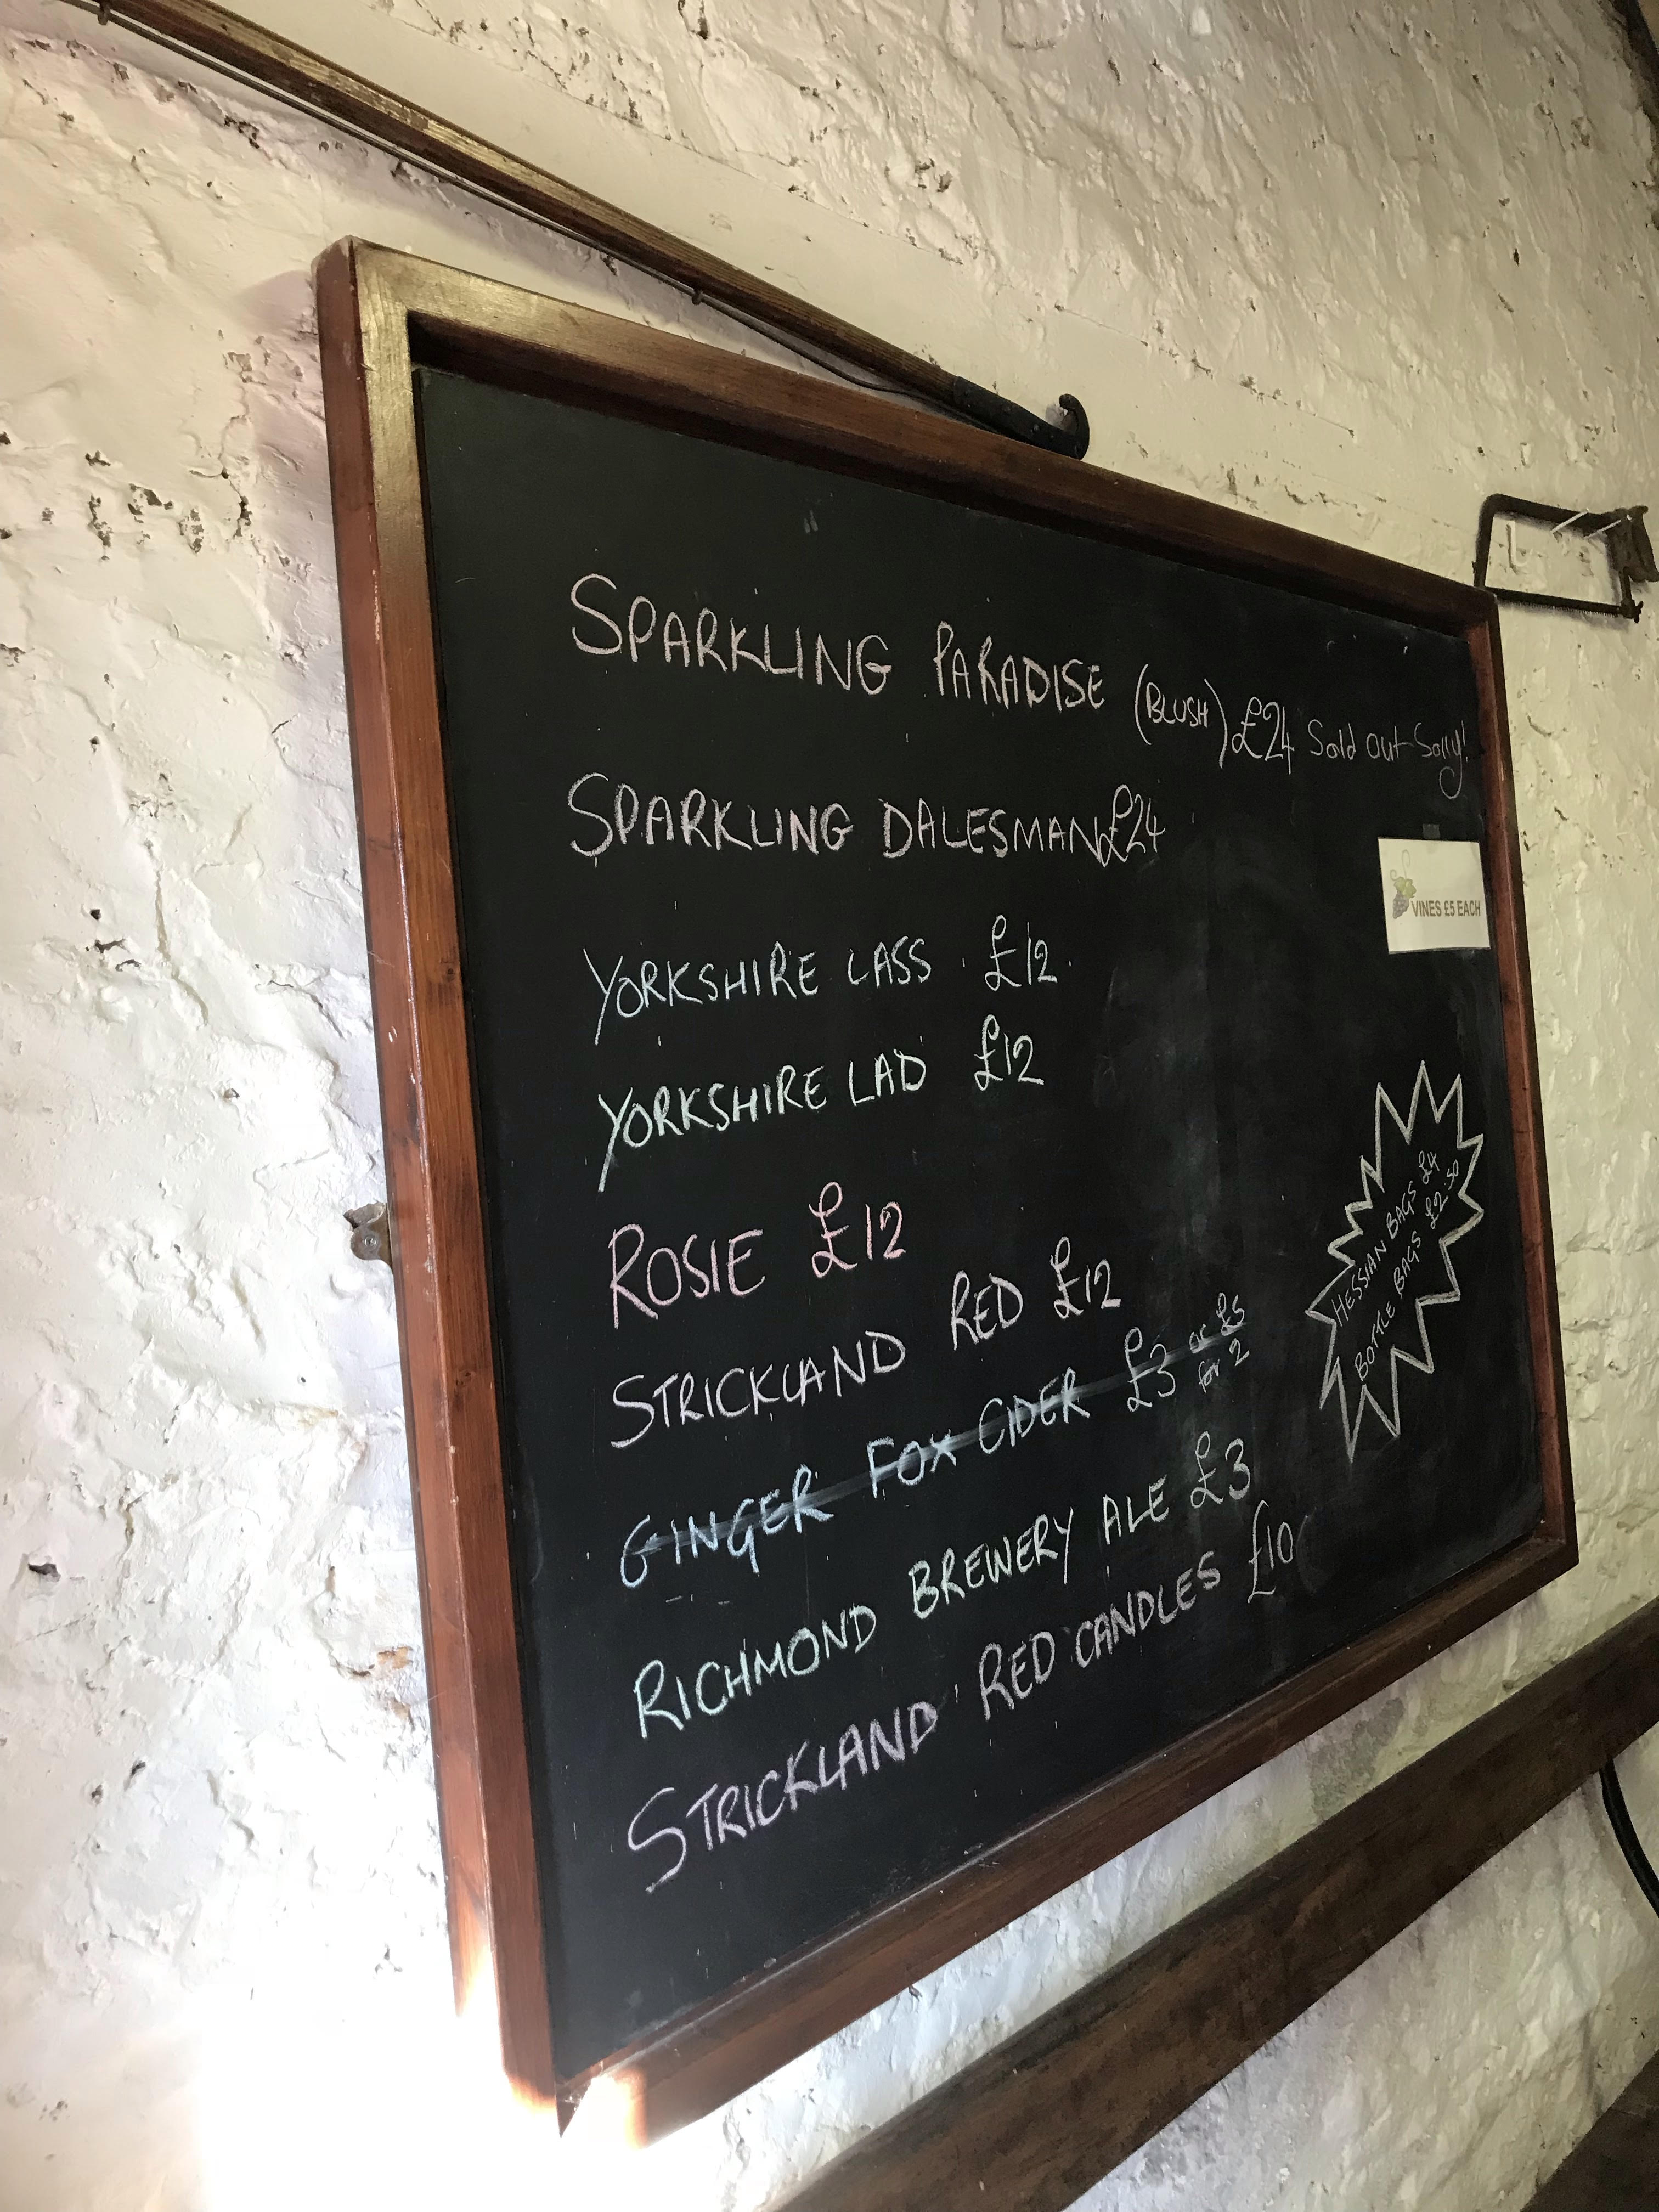 SPARKLING PARADISE (BLUSH) £24 Sold Out Sorry!
SPARKLING DALESMAN £24
VINES £5 EACH
YORKSHIRE LASS £12
YORKSHIRE LAD £12
ROSIE £12
STRICKLAND RED £12
GINGER FOX CIDER £3 or £5
for 2
RICHMOND BREWERY ALE £3
STRICKLAND RED CANDLES £10
HESSIAN BAGS £4
BOTTLE BAGS £2.50